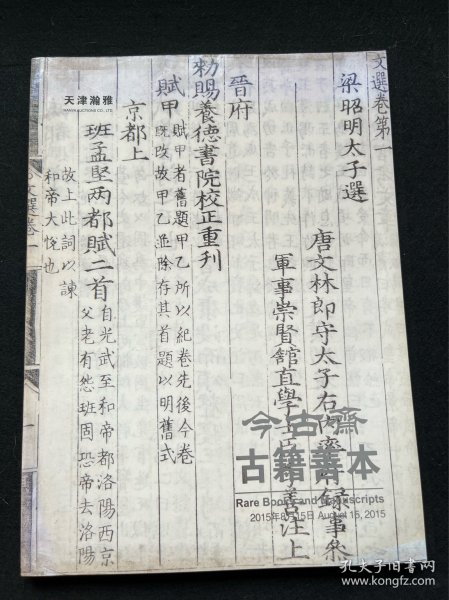 文選卷第一
梁昭明太子選
唐文林郎守太子右內率府錄事參
軍事崇賢館直學士臣李善注上
晉府
勑賜養德書院校正重刊
賦甲
賦甲者舊題甲乙所以紀卷先後今卷
既改故甲乙並除存其首題以明舊式
京都上
班孟堅兩都賦二首
自光武至和帝都洛陽西京
父老有怨班固恐帝去洛陽
故上此詞以諫
和帝大悅也
文選卷一
天津瀚雅
HANYA AUCTIONS CO., LTD
今古齋
古籍善本
Rare Books and Manuscripts
2015年8月15日 August 15, 2015
孔夫子旧书网
www.kongfz.com